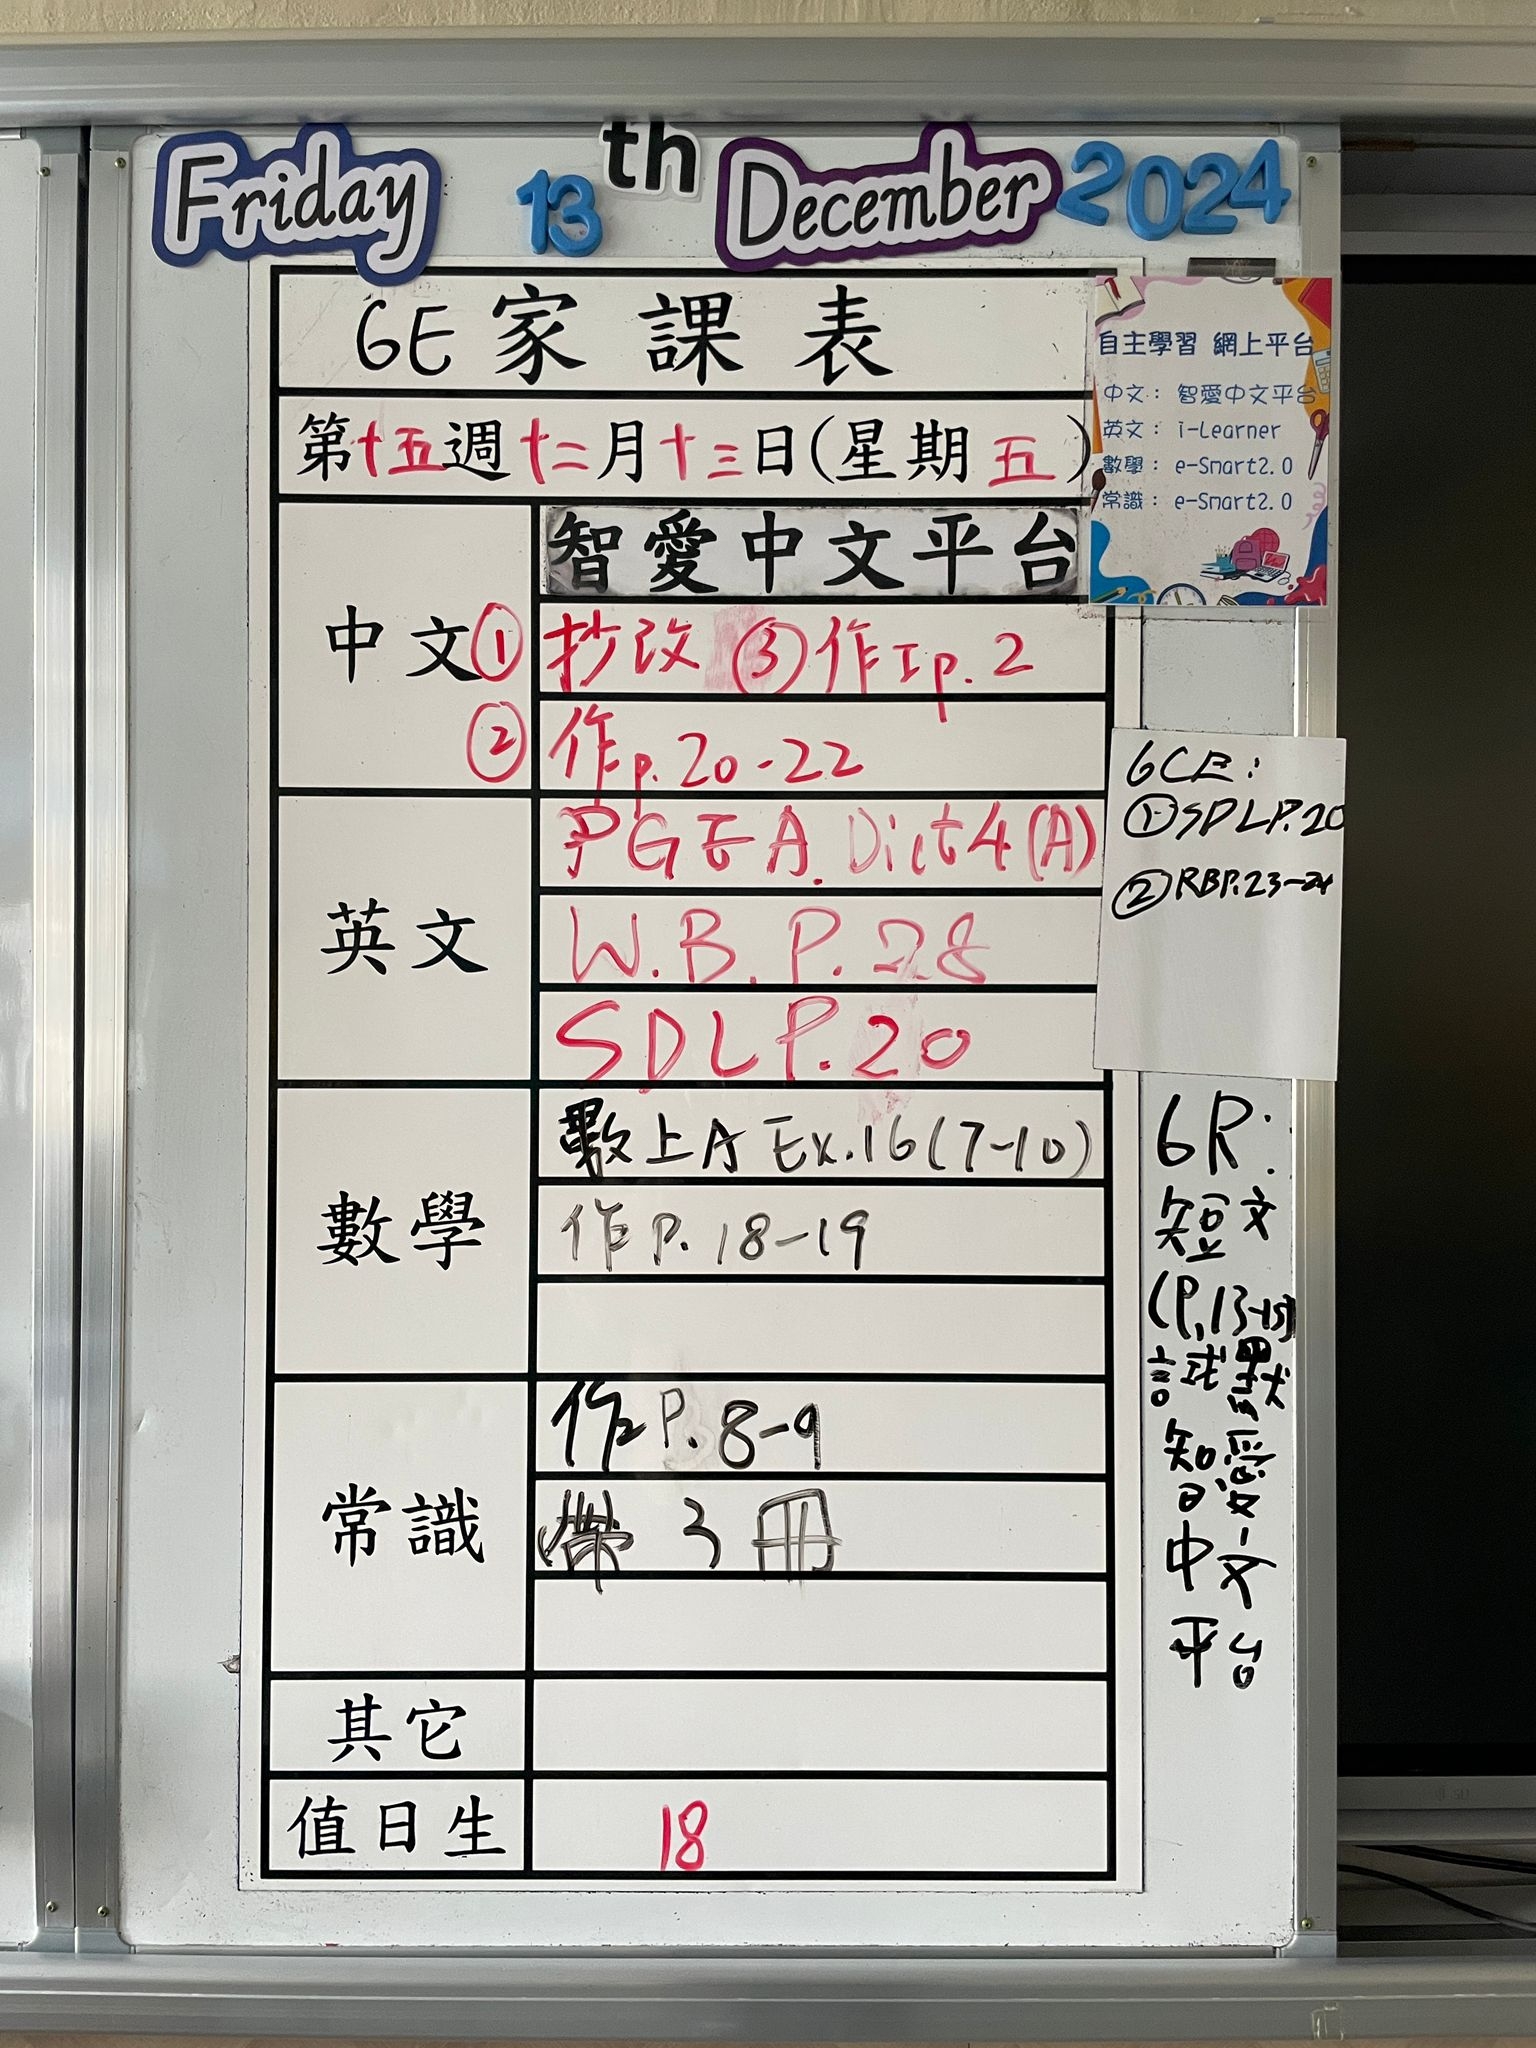 Friday 13th December 2024
6E 家課表
第十五週十二月十三日(星期五)
自主學習 網上平台
中文： 智愛中文平台
英文： i-Learner
數學： e-Smart2.0
常識： e-Smart2.0
中文
智愛中文平台
① 抄改 ③作Ip.2
② 作p.20-22
英文
PGEA. Dict4(A)
W.B.P.28
SDLP.20
6CE:
①SDLP.20
②RBP.23-24
數學
數上A Ex.16(7-10)
作P.18-19
常識
作P.8-9
帶3冊
其它
值日生
18
6R:
短文
(P.13-15)
試默
智愛
中文
平台